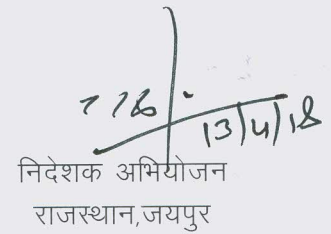 13/4/18
निदेशक अभियोजन
राजस्थान,जयपुर